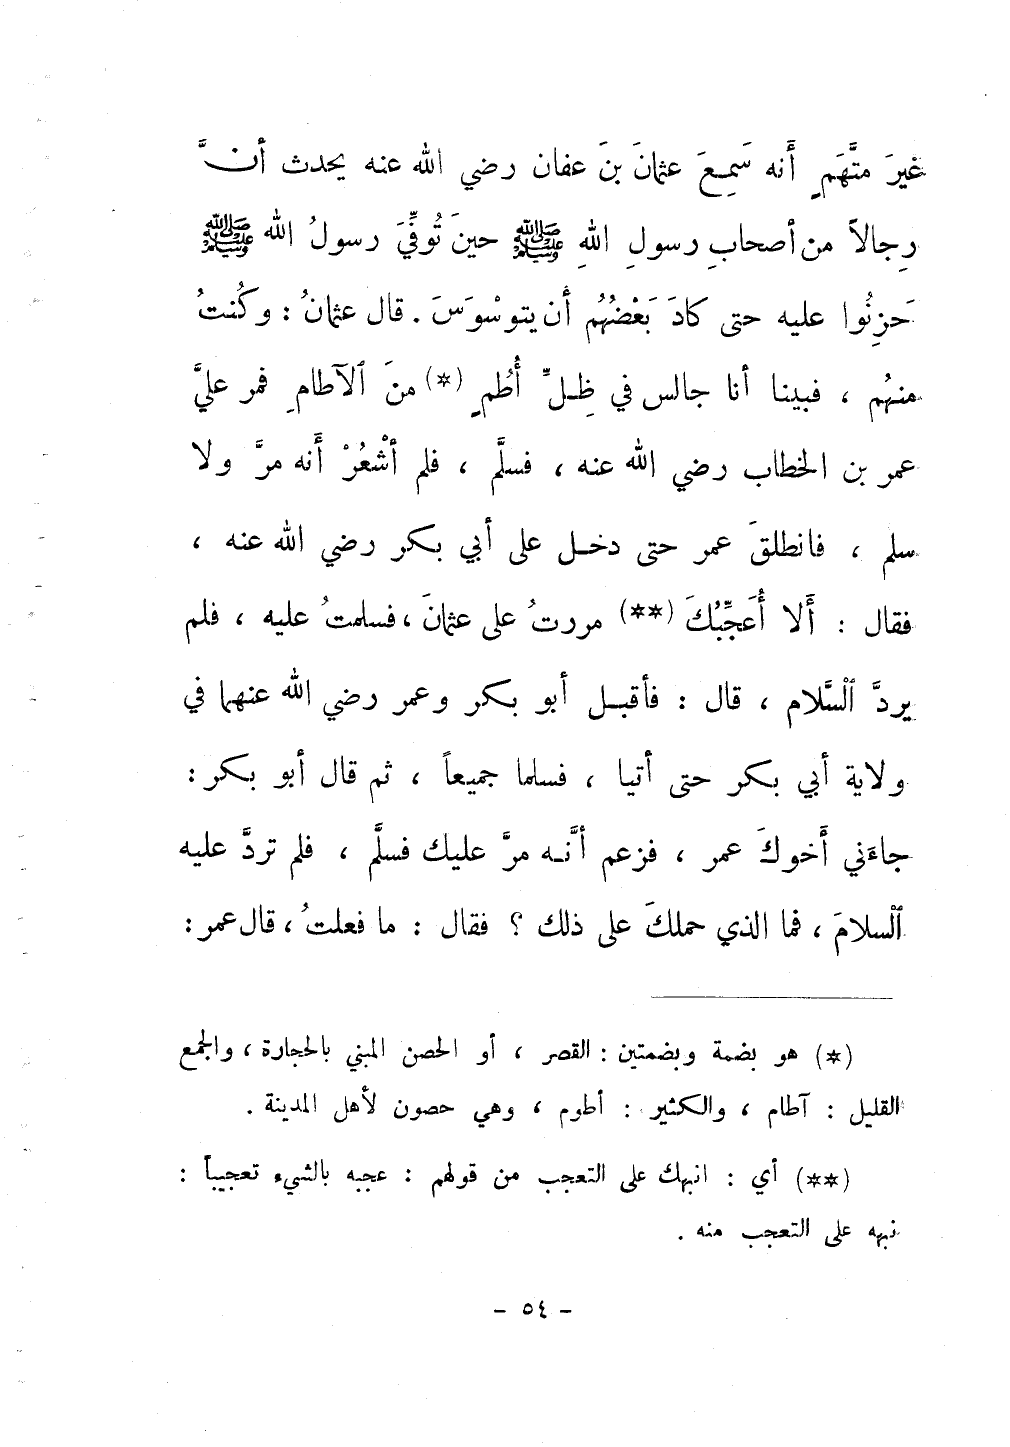 غيرَ متَّهَمٍ أَنه سَمِعَ عثمانَ بنَ عفان رضي الله عنه يحدث أنَّ
رِجالاً من أصحابِ رسولِ اللهِ ﷺ حينَ تُوفِّيَ رسولُ الله ﷺ
حَزِنُوا عليه حتى كادَ بَعْضُهُم أَن يتوسْوَسَ . قال عثمانُ : وكُنتُ
منهُم ، فبينا أنا جالس في ظِلِّ أُطُمٍ (*) منَ ٱلآطامِ فمر عليَّ
عمر بن الخطاب رضي الله عنه ، فسلَّم ، فلم أشْعُرْ أَنه مرَّ ولا
سلم ، فانطلقَ عمر حتى دخل على أبي بكر رضي الله عنه ،
فقال : أَلا أُعَجِّبُكَ (**) مررتُ على عثمانَ ، فسلمتُ عليه ، فلم
يردَّ ٱلسَّلام ، قال : فأقبل أبو بكر وعمر رضي الله عنهما في
ولاية أبي بكر حتى أتيا ، فسلما جميعاً ، ثم قال أبو بكر :
جاءَني أَخوكَ عمر ، فزعم أنَّه مرَّ عليك فسلَّم ، فلم تردَّ عليه
ٱلسلامَ ، فما الذي حملكَ على ذلك ؟ فقال : ما فعلتُ ، قال عمر :
(*) هو بضمة وبضمتين : القصر ، أو الحصن المبني بالحجارة ، والجمع
القليل : آطام ، والكثير : أطوم ، وهي حصون لأهل المدينة .
(**) أي : انبهك على التعجب من قولهم : عجبه بالشيء تعجيباً :
نبهه على التعجب منه .
- ٥٤ -